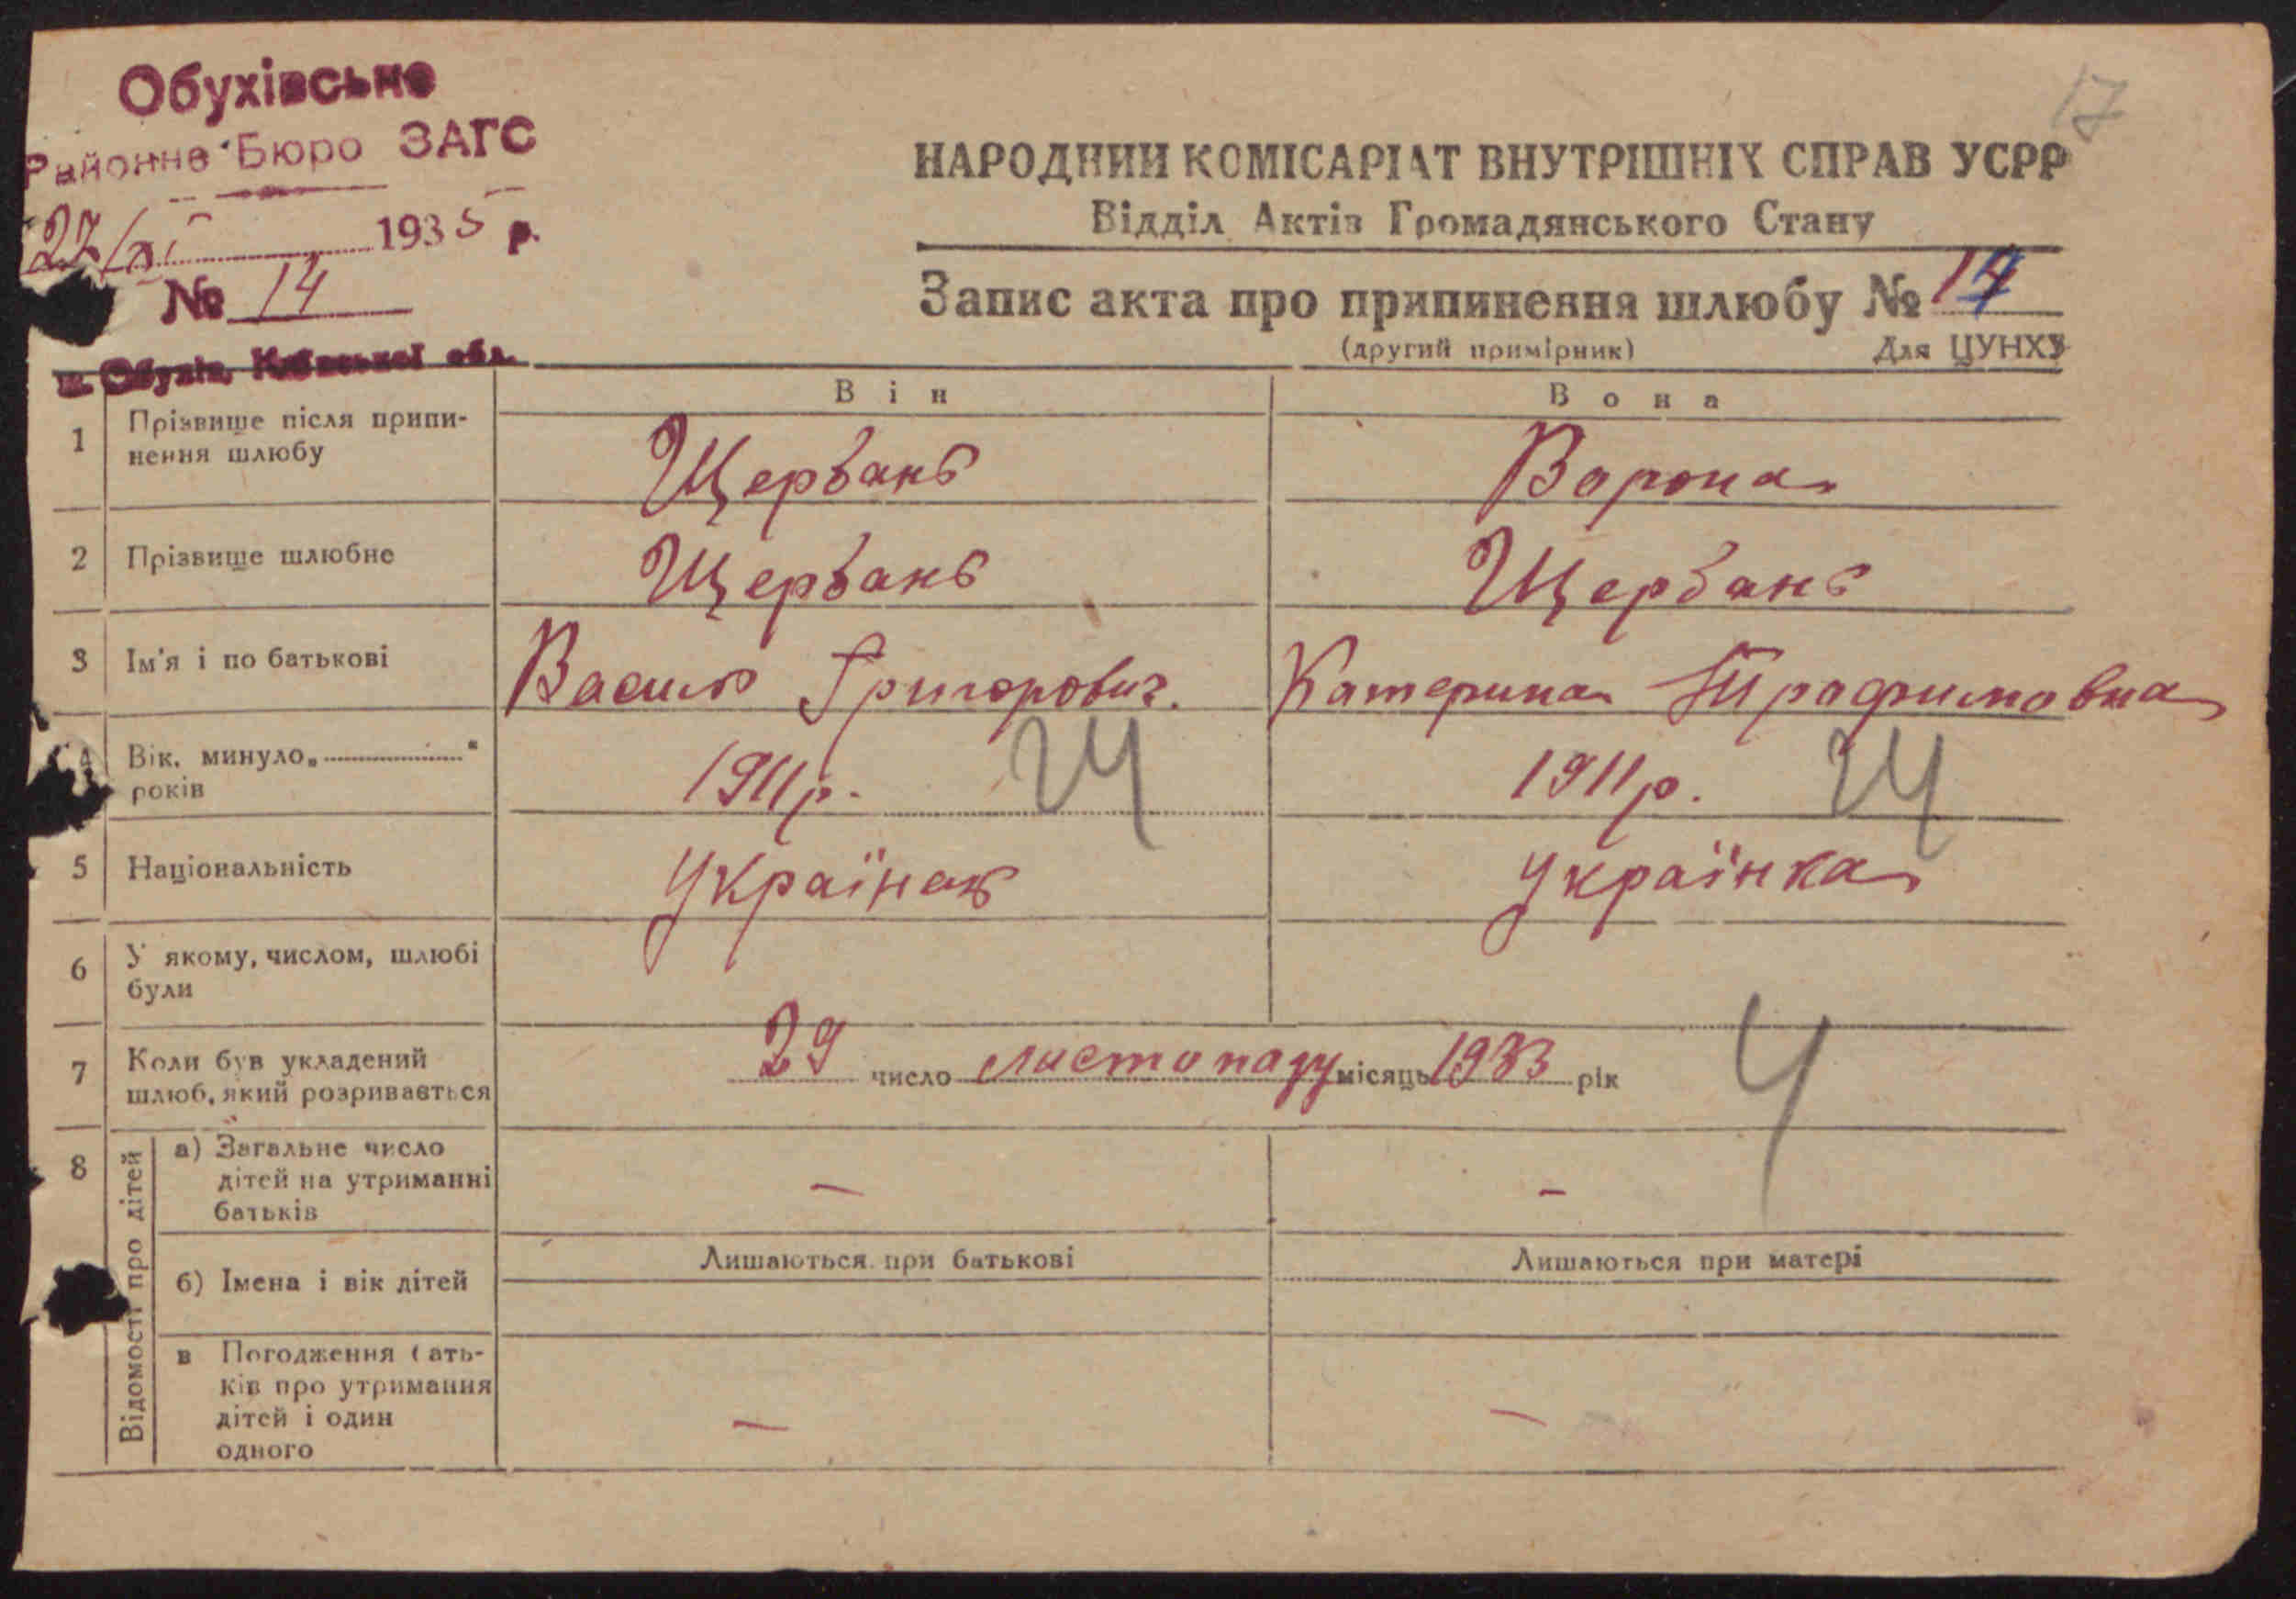 Обухівське
Районне Бюро ЗАГС
27/XI 1935 р.
№ 14
м. Обухів, Київської обл.
17
НАРОДНИЙ КОМІСАРІАТ ВНУТРІШНІХ СПРАВ УСРР
Відділ Актів Громадянського Стану
Запис акта про припинення шлюбу № 14
(другий примірник) Для ЦУНХУ
Він Вона
1 Прізвище після припи-
нення шлюбу Щербань Ворона
2 Прізвище шлюбне Щербань Щербань
3 Ім'я і по батькові Василь Григорович. Катерина Трафимовна
4 Вік. минуло „ “
років 1911р. 24 1911р. 24
5 Національність Українець Українка
6 У якому, числом, шлюбі
були
7 Коли був укладений
шлюб, який розривається 29 число листопаду місяць 1933 рік
8 Відомості про дітей
а) Загальне число
дітей на утриманні
батьків — —
б) Імена і вік дітей Лишаються при батькові Лишаються при матері
в Погодження бать-
ків про утримання
дітей і один
одного — —